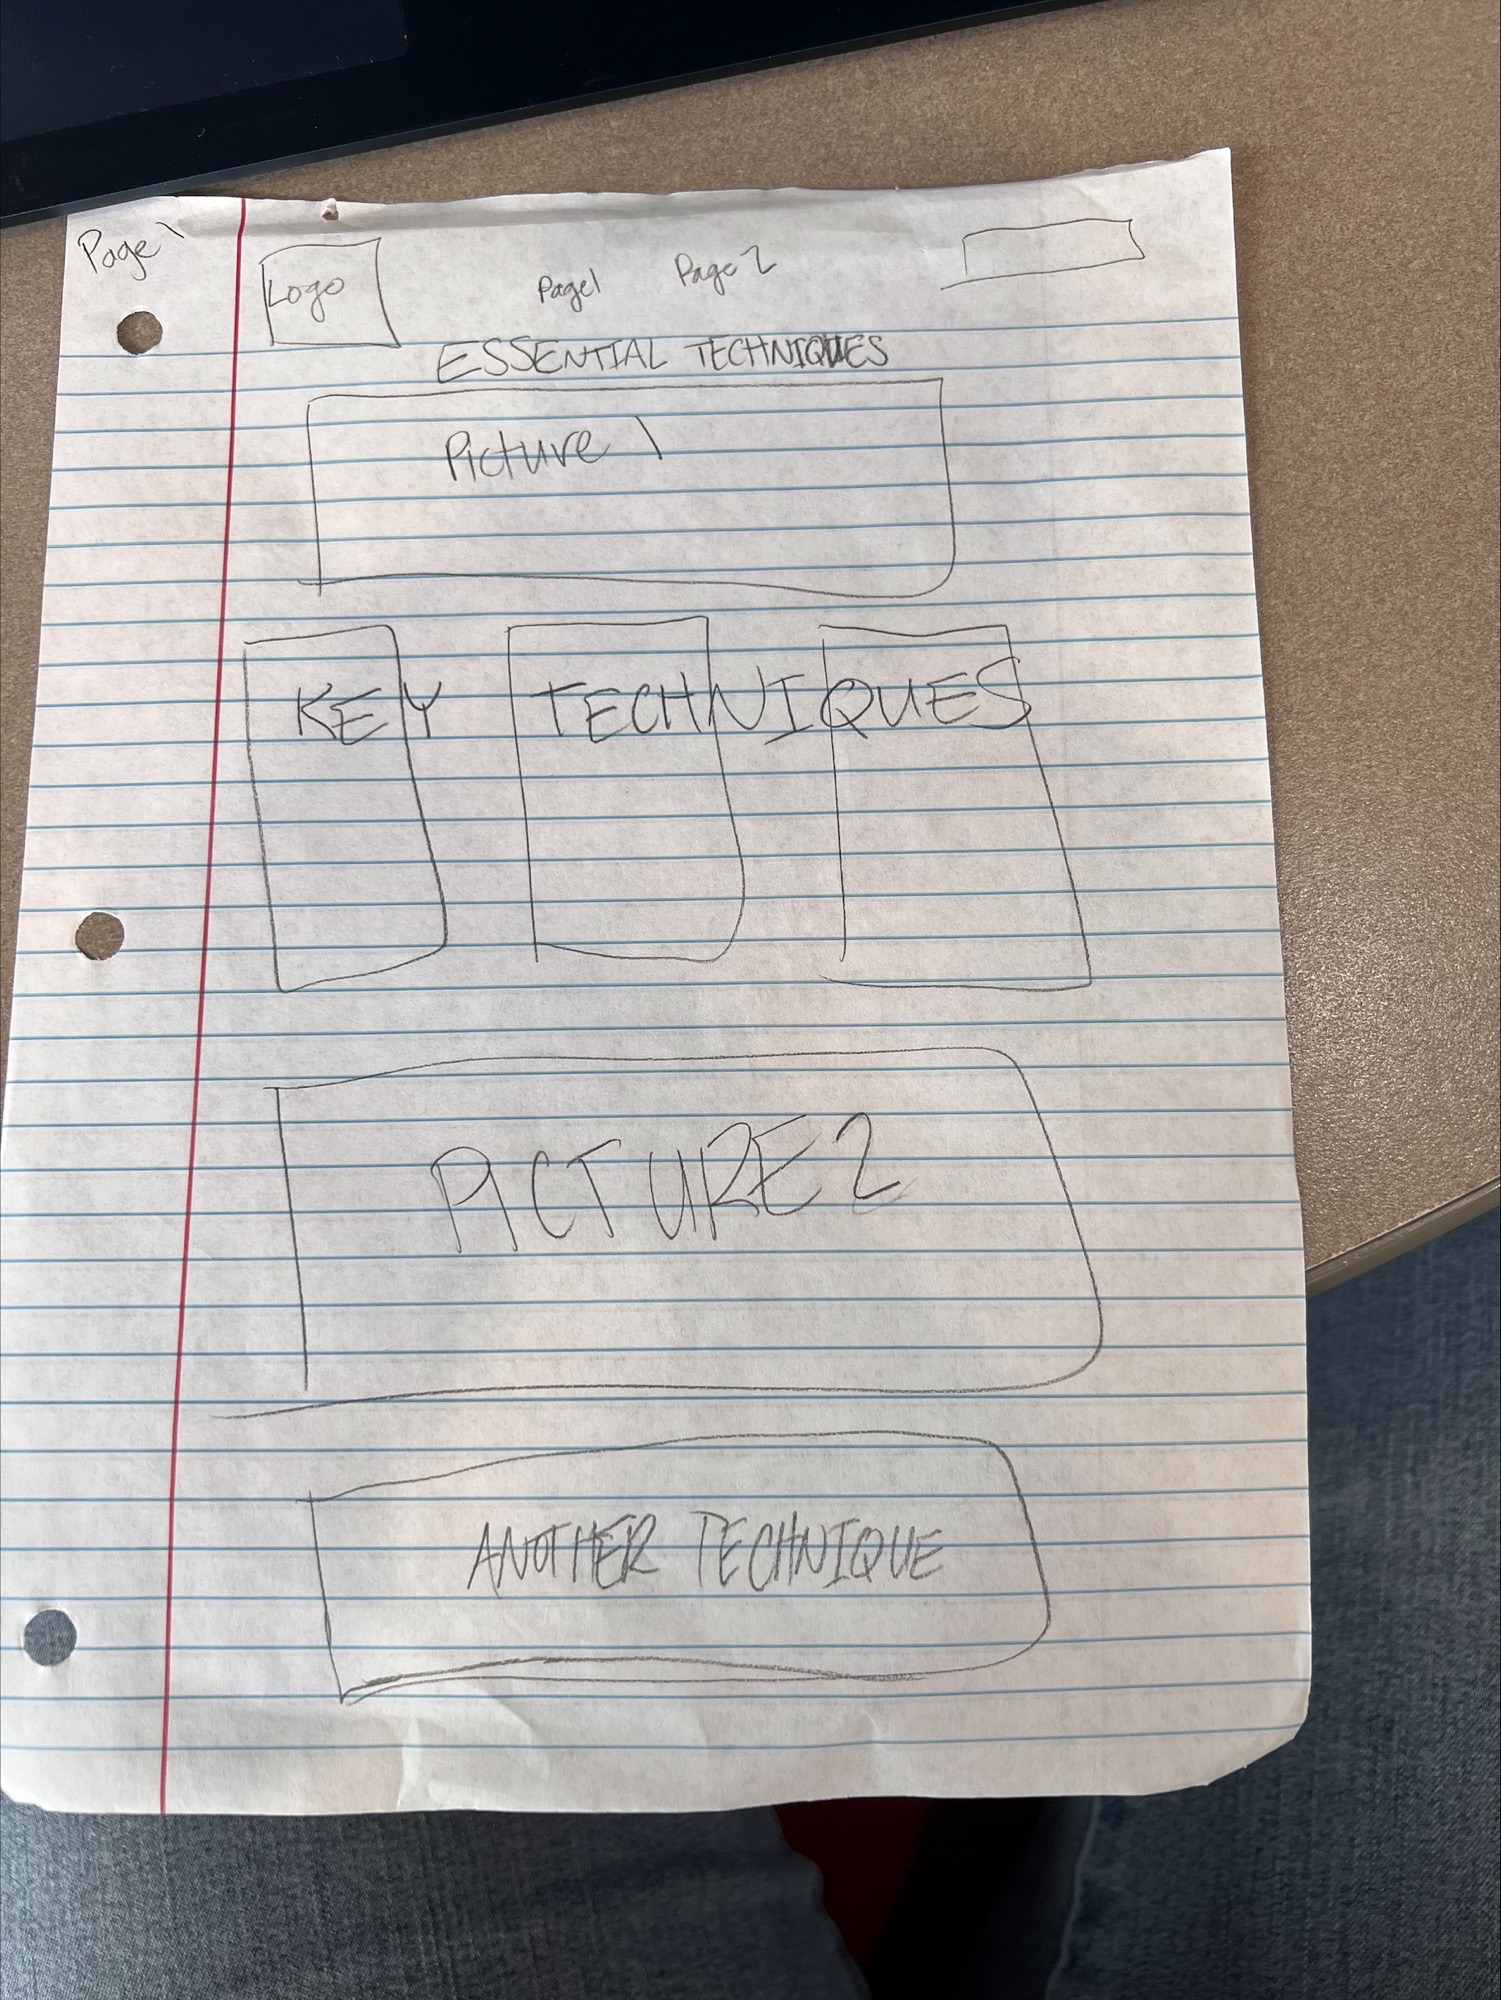 Page 1
Logo
Page1 Page 2
ESSENTIAL TECHNIQUES
Picture 1
KEY TECHNIQUES
PICTURE 2
ANOTHER TECHNIQUE